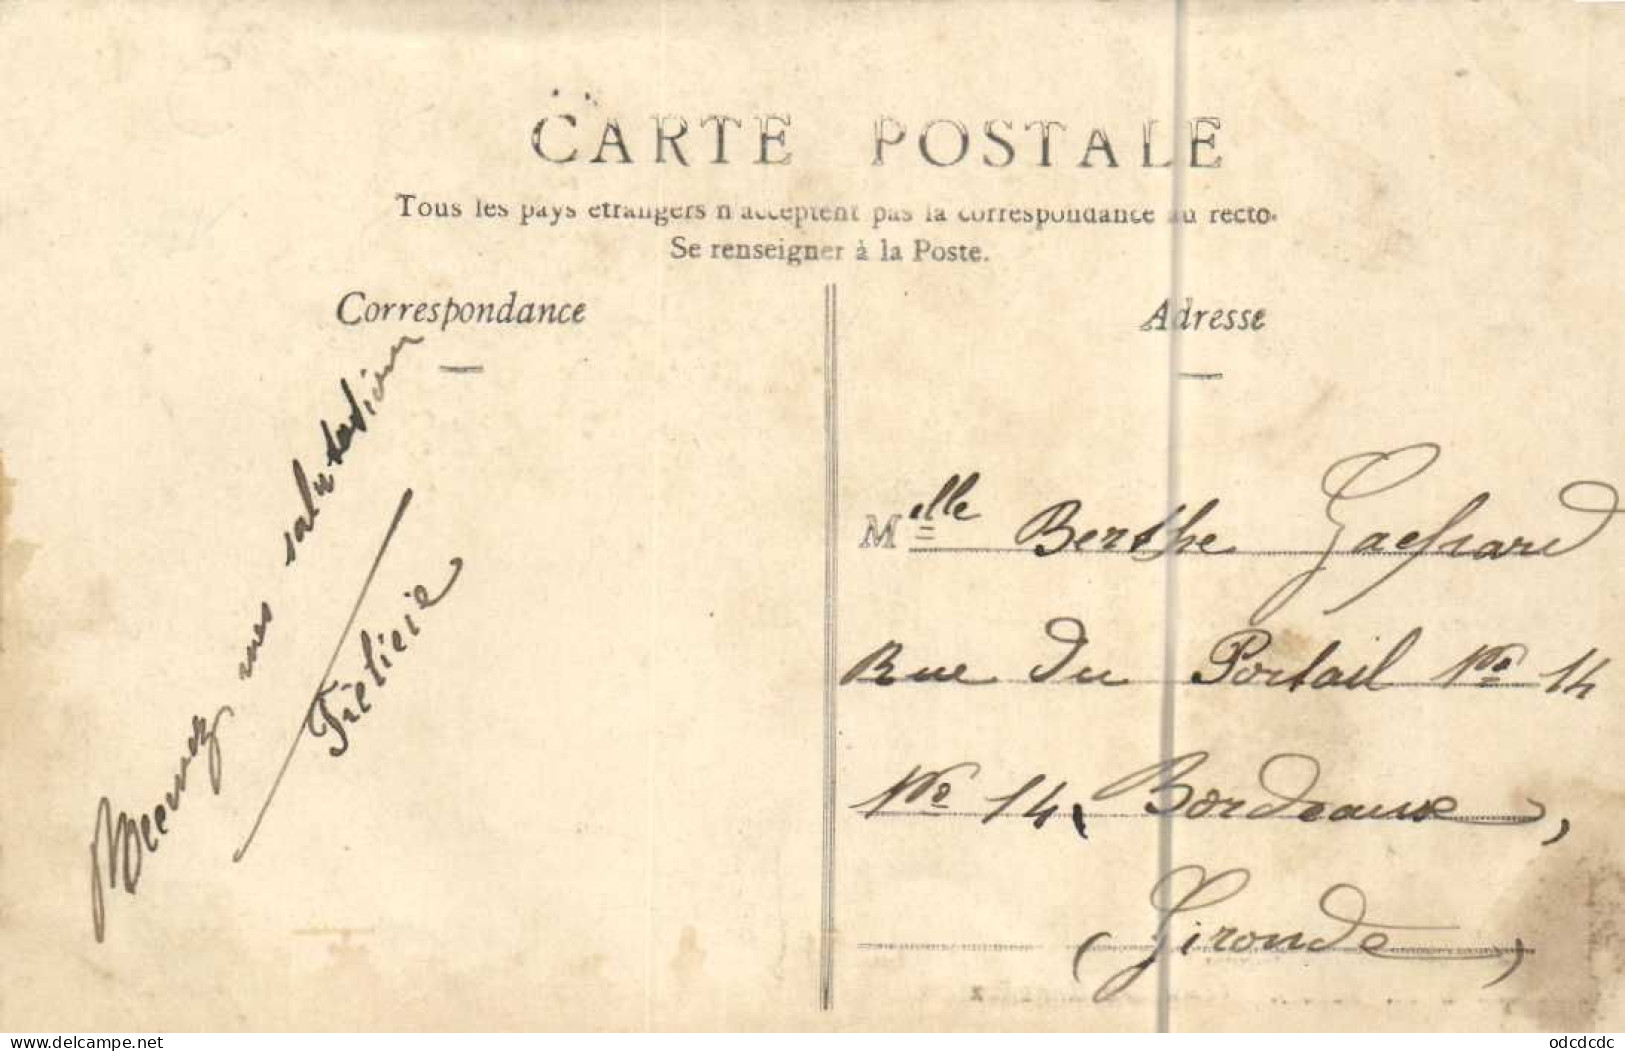 CARTE POSTALE
Tous les pays étrangers n'acceptent pas la correspondance au recto.
Se renseigner à la Poste.
Correspondance
mes salutation
Adresse
Mlle Berthe
Rue du Portail No 14
No 14, Bordeaux,
(Gironde)
delcampe.net
odcdcdc